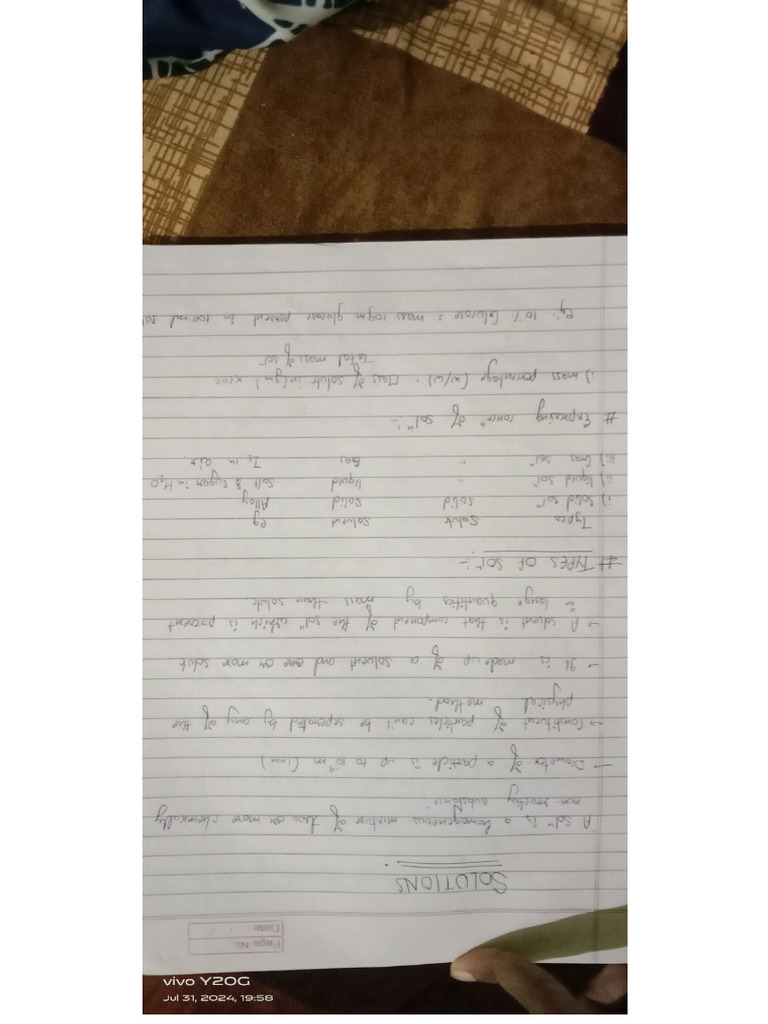 Page No:
Date: / /
SOLUTIONS
"A solⁿ is a homogeneous mixture of two or more chemically
non-reacting substance"
→ Diameter of a particle is up to 10⁻⁹m (1nm)
→ Constituent of particles can't be seperated by any of the
physical method.
→ It is made up of a solvent and one or more solute
→ A solvent is that component of the solⁿ which is present
in large quantities by mass than solute.
# TYPES OF SOLⁿ :-
Types Solute solvent eg
i) solid solⁿ solid solid Alloy
ii) liquid solⁿ " liquid salt & sugar in H₂O
iii) Gas solⁿ " Gas I₂ in air.
# Expresing concⁿ of solⁿ :-
i) mass percentage (w/w) = Mass of solute in(gm) x100
Total mass of solⁿ
eg:- 10% Glucose = mass 10gm glucose present in 100ml solⁿ
vivo Y20G
Jul 31, 2024, 19:58